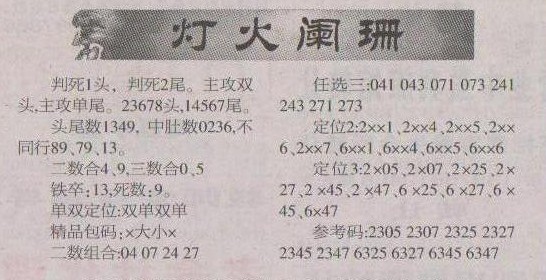 灯火阑珊
判死1头，判死2尾。主攻双
头,主攻单尾。23678头,14567尾。
头尾数1349，中肚数0236,不
同行89、79、13。
二数合4、9,三数合0、5
铁卒:13,死数:9。
单双定位:双单双单
精品包码:×大小×
二数组合:04 07 24 27
任选三:041 043 071 073 241
243 271 273
定位2:2××1、2××4、2××5、2××
6、2××7、6××1、6××4、6××5、6××6
定位3:2×05、2×07、2×25、2×
27、2×45、2×47、6×25、6×27、6×
45、6×47
参考码:2305 2307 2325 2327
2345 2347 6325 6327 6345 6347